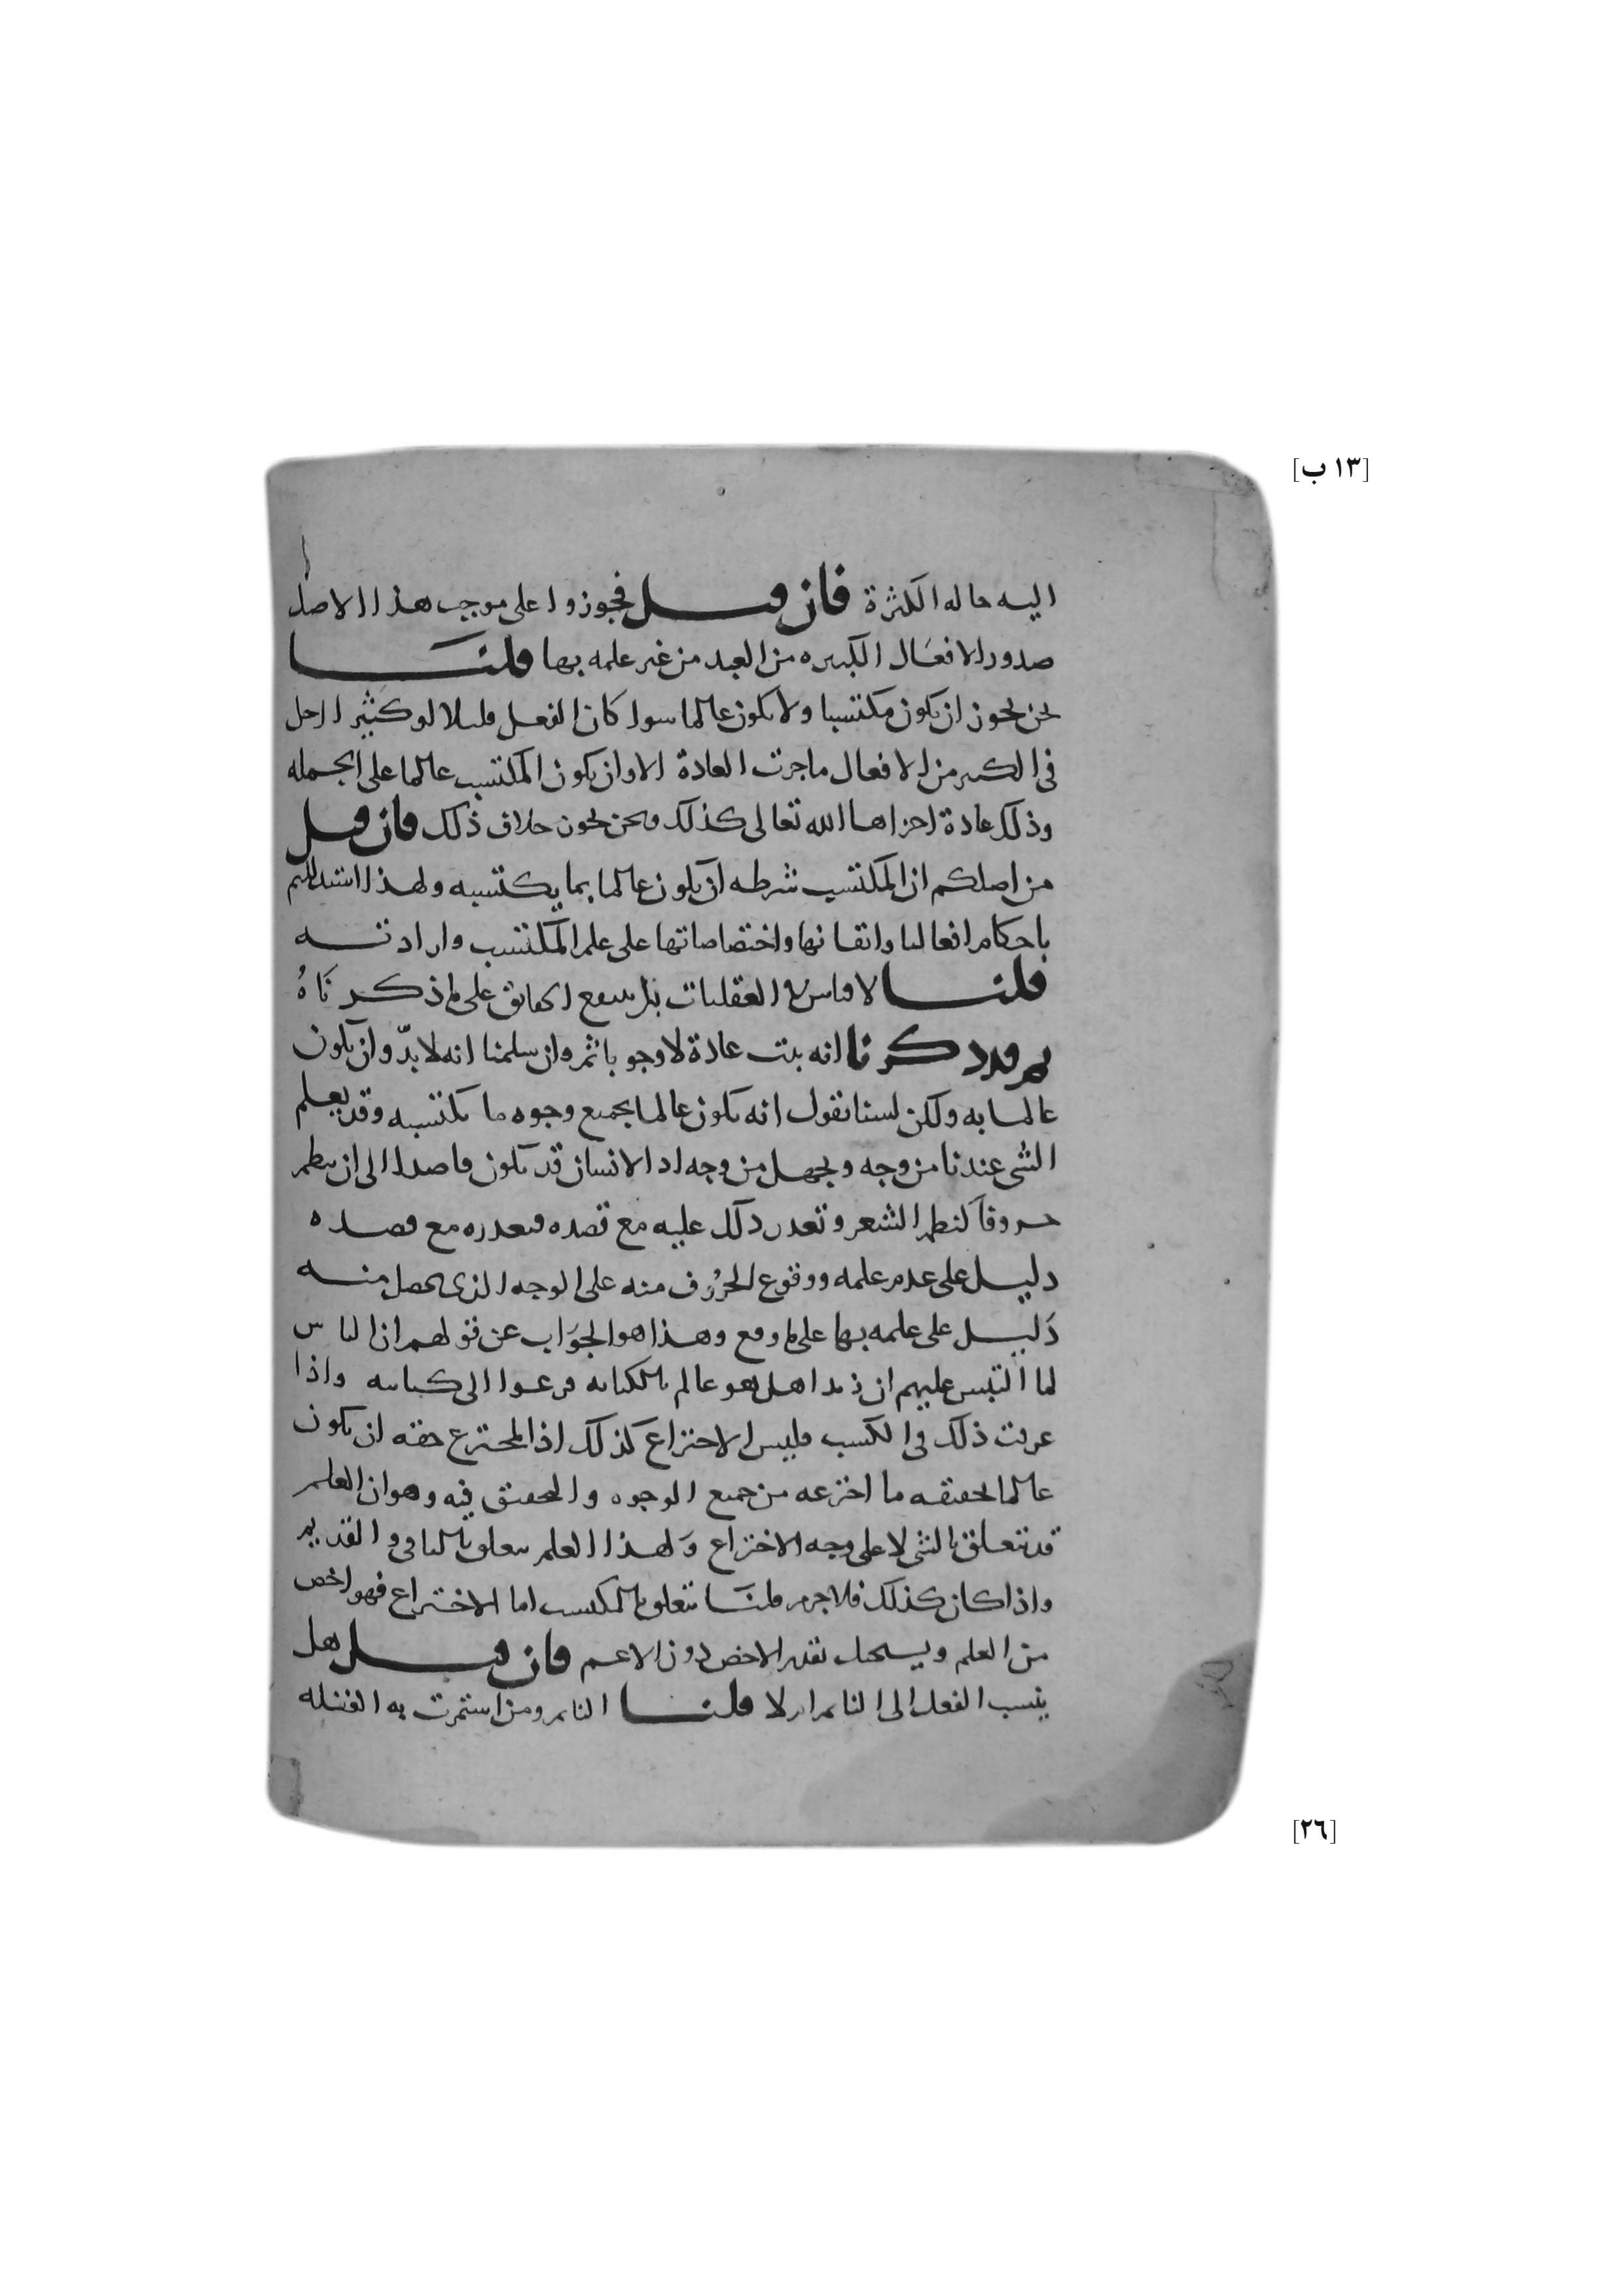 [١٣ ب]
اليه حاله الكثرة فان قيل فجوزوا على موجب هذا الاصل
صدور الافعال الكثيره من العبد من غير علمه بها قلنا
نحن نجوز ان يكون مكتسبا ولا يكون عالما سوا كان الفعل قليلا او كثيرا
في الكثير من الافعال ما جرت العادة الا وان يكون المكتسب عالما على الجمله
وذلك عادة اجراها الله تعالى كذلك ونحن نجوز خلاف ذلك فان قيل
من اصلكم ان المكتسب شرطه ان يكون عالما بما يكتسبه ولهذا استدللتم
باحكام افعالنا واتقانها واختصاصاتها على علم المكتسب وارادته
قلنا لا قياس في العقليات بل نتبع الحقايق على ما ذكرناهُ
ثم قد ذكرنا انه يثبت عادة لا وجوبا ثم وان سلمنا انه لا بدّ وان يكون
عالما به ولكن لسنا نقول انه يكون عالما بجميع وجوه ما يكتسبه وقد يعلم
الشي عندنا من وجه ويجهل من وجه اذ الانسان قد يكون قاصدا الى ان ينظم
حروفا كنظم الشعر وتعذر ذلك عليه مع قصده فتعذره مع قصده
دليل على عدم علمه ووقوع الحروف منه على الوجه الذي يحصل منه
دَليل على علمه بها على ما وقع وهذا هو الجوَاب عن قولهم ان الناس
لما التبس عليهم ان زيدا هل هو عالم بالكتابه فزعوا الى كتابته واذا
عرفت ذلك في الكسب فليس الاختراع كذلك اذ المخترع حقه ان يكون
عالما بحقيقه ما اخترعه من جميع الوجوه والتحقيق فيه وهو ان العلم
قد تتعلق بالشي لا على وجه الاختراع وَلهذا العلم يتعلق بالباقي والقديم
واذا كان كذلك فلا جرم قلنَا يتعلق بالمكتسب اما الاختراع فهو اخص
من العلم ويستحيل تقدير الاخص دون الاعم فان قيل هل
ينسب الفعل الى النائم ام لا قلنا النائم ومن استمرت به الغفله
[٢٦]